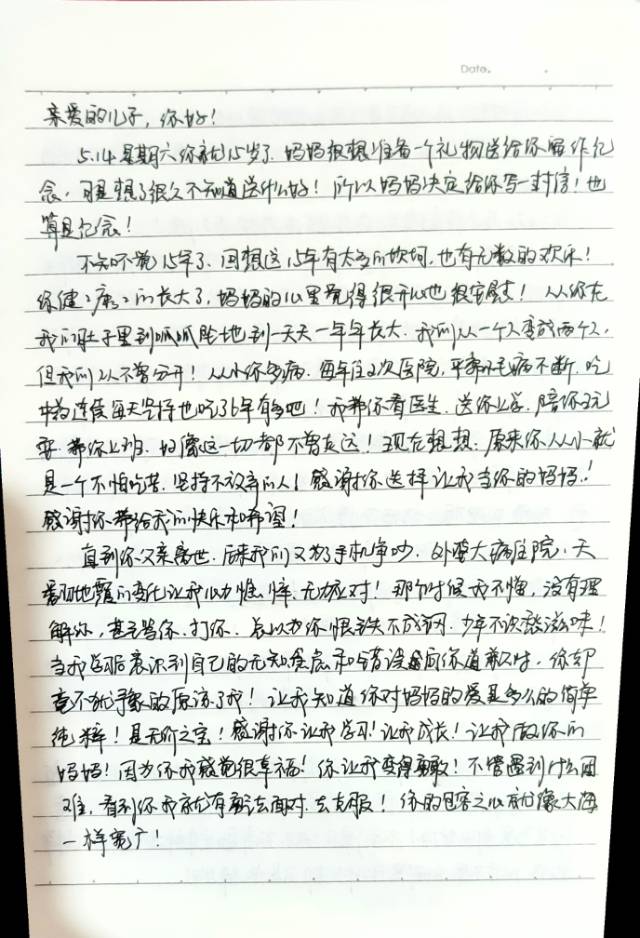 Date.
亲爱的儿子,你好!
5.14星期六你就15岁了.妈妈很想准备一个礼物送给你留作纪
念.可是想了很久不知道送什么好!所以妈妈决定给你写一封信!也
算是纪念!
不知不觉15年了.回想这15年有太多的坎坷,也有无数的欢乐!
你健健康康的长大了,妈妈的心里觉得很开心也很安慰!从你在
我的肚子里到呱呱坠地到一天天一年年长大.我们从一个人变成两个人,
但我们从不曾分开!从小你多病.每年住几次医院,平常小毛病不断.吃
中药连续每天坚持也吃了6年有多吧!我带你看医生.送你上学.陪你玩
耍.带你上班.好像这一切都不曾走远!现在想想.原来你从小就
是一个不怕吃苦.坚持不放弃的人!感谢你选择让我当你的妈妈!
感谢你带给我的快乐和希望!
直到你父亲离世.后来我们又为了手机争吵.外婆大病住院.天
翻地覆的变化让我心力憔悴.无力应对!那个时候我不懂,没有理
解你,甚至骂你.打你.总以为你恨铁不成钢.少年不识愁滋味!
当我后意识到自己的无知愚昧和错误向你道歉时.你却
毫不犹豫的原谅了我!让我知道你对妈妈的爱是多么的简单
纯粹!是无价之宝!感谢你让我学习!让我成长!让我做你的
妈妈!因为你我感觉很幸福!你让我变得勇敢!不管遇到什么困
难,看到你我就有勇气面对.去克服!你的包容之心就像大海
一样宽广!